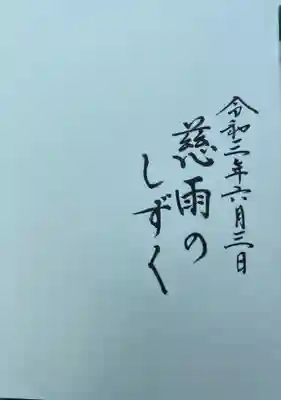 令和三年六月三日
慈雨の
しずく